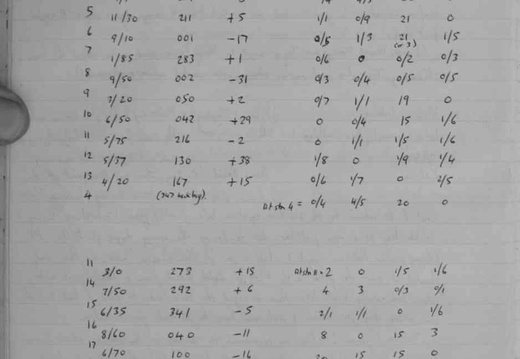 5 11/30 211 +5 1/1 0/9 21 0
6 9/10 001 -17 0/5 1/3 21 (or 3) 1/5
7 1/85 283 +1 0/6 0 0/2 0/3
8 9/50 002 -31 0/3 0/4 0/5 0/5
9 7/20 050 +2 0/7 1/1 19 0
10 6/50 042 +29 0 0/4 15 1/6
11 5/75 216 -2 0 1/1 1/5 1/6
12 5/37 130 +38 1/8 0 1/9 1/4
13 4/20 167 +15 0/6 1/7 0 2/5
4 (347 back bg). At stn 4 = 0/4 4/5 20 0
11 3/0 273 +15 At stn 11 = 2 0 1/5 1/6
14 7/50 292 +6 4 3 0/3 0/1
15 6/35 341 -5 2/1 1/1 0 1/6
16 8/60 040 -11 8 0 15 3
17 6/70 100 -16 20 15 15 0